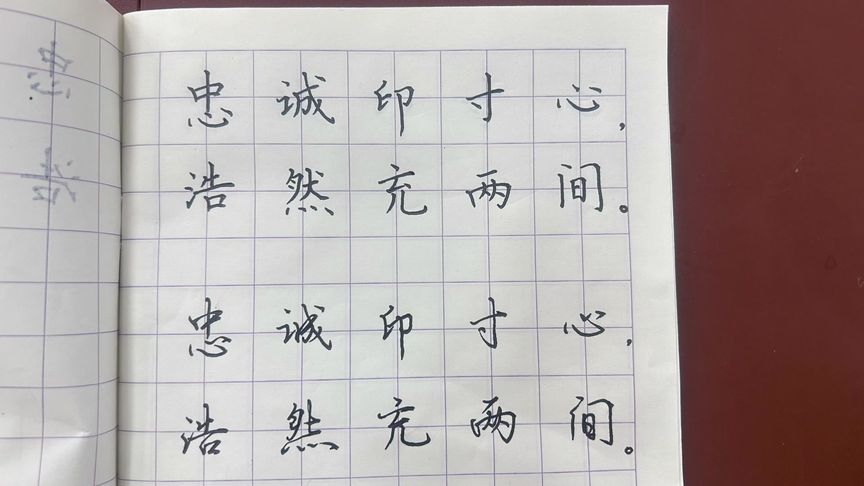 忠诚印寸心,
浩然充两间。
忠诚印寸心,
浩然充两间。